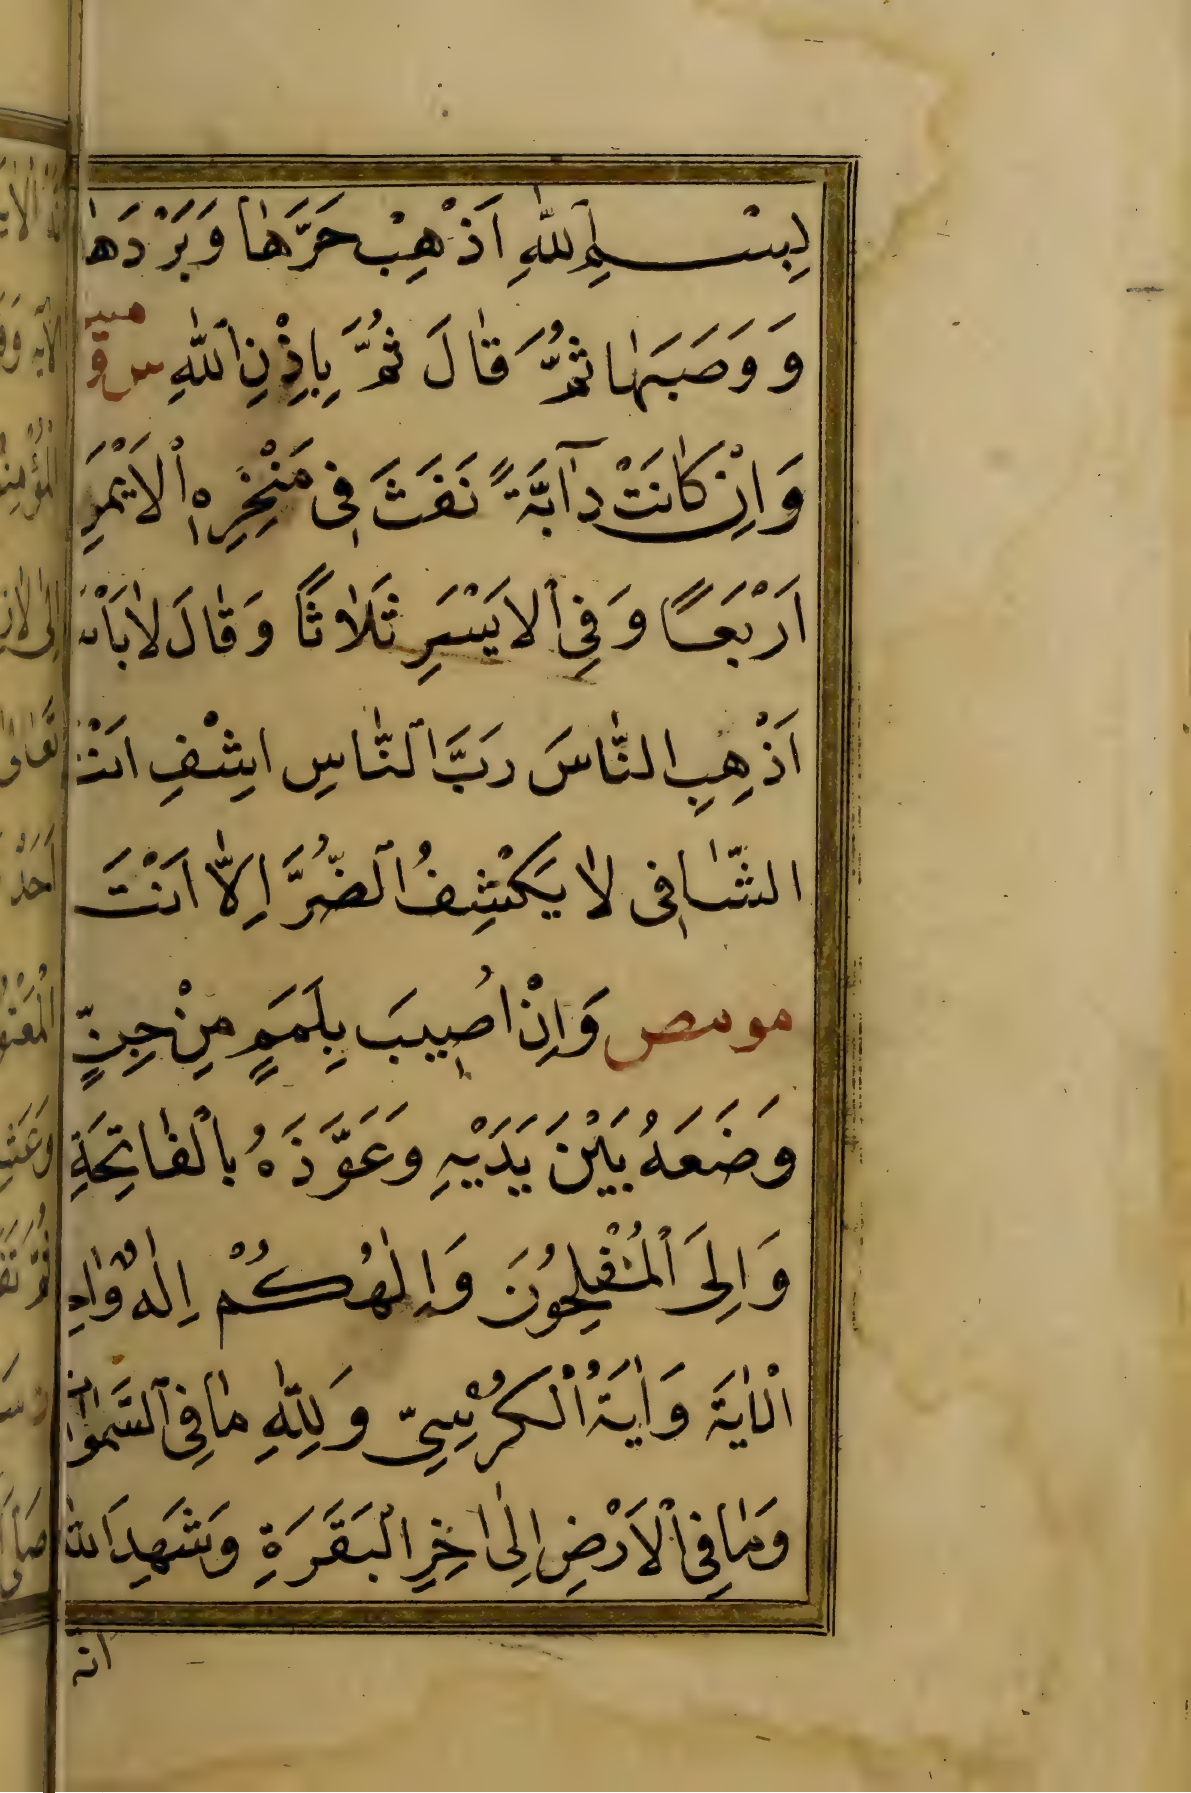 بِسْمِ اللّٰهِ اَذْهِبْ حَرَّهَا وَبَرْدَهَا
وَوَصَبَهَا ثُمَّ قَالَ ثُمَّ بِاِذْنِ اللّٰهِ س ق
وَاِنْ كَانَتْ دَآبَّةً نَفَثَ فِى مَنْخِرِهِ الْاَيْمَنِ
اَرْبَعًا وَفِى الْاَيْسَرِ ثَلَاثًا وَقَالَ لَا بَأْسَ
اَذْهِبِ النَّاسَ رَبَّ النَّاسِ اِشْفِ اَنْتَ
الشَّافِى لَا يَكْشِفُ الضُّرَّ اِلَّا اَنْتَ
مو مص وَاِنْ اُصِيبَ بِلَمَمٍ مِنْ جِنٍّ
وَضَعَهُ بَيْنَ يَدَيْهِ وَعَوَّذَهُ بِالْفَاتِحَةِ
وَاِلَى الْمُفْلِحُونَ وَاِلٰهُكُمْ اِلٰهٌ وَاحِ
الْاٰيَةَ وَاٰيَةُ الْكُرْسِىِّ وَلِلّٰهِ مَا فِى السَّمٰوَاتِ
وَمَا فِى الْاَرْضِ اِلٰى اٰخِرِ الْبَقَرَةِ وَشَهِدَ اللّٰهُ
انه